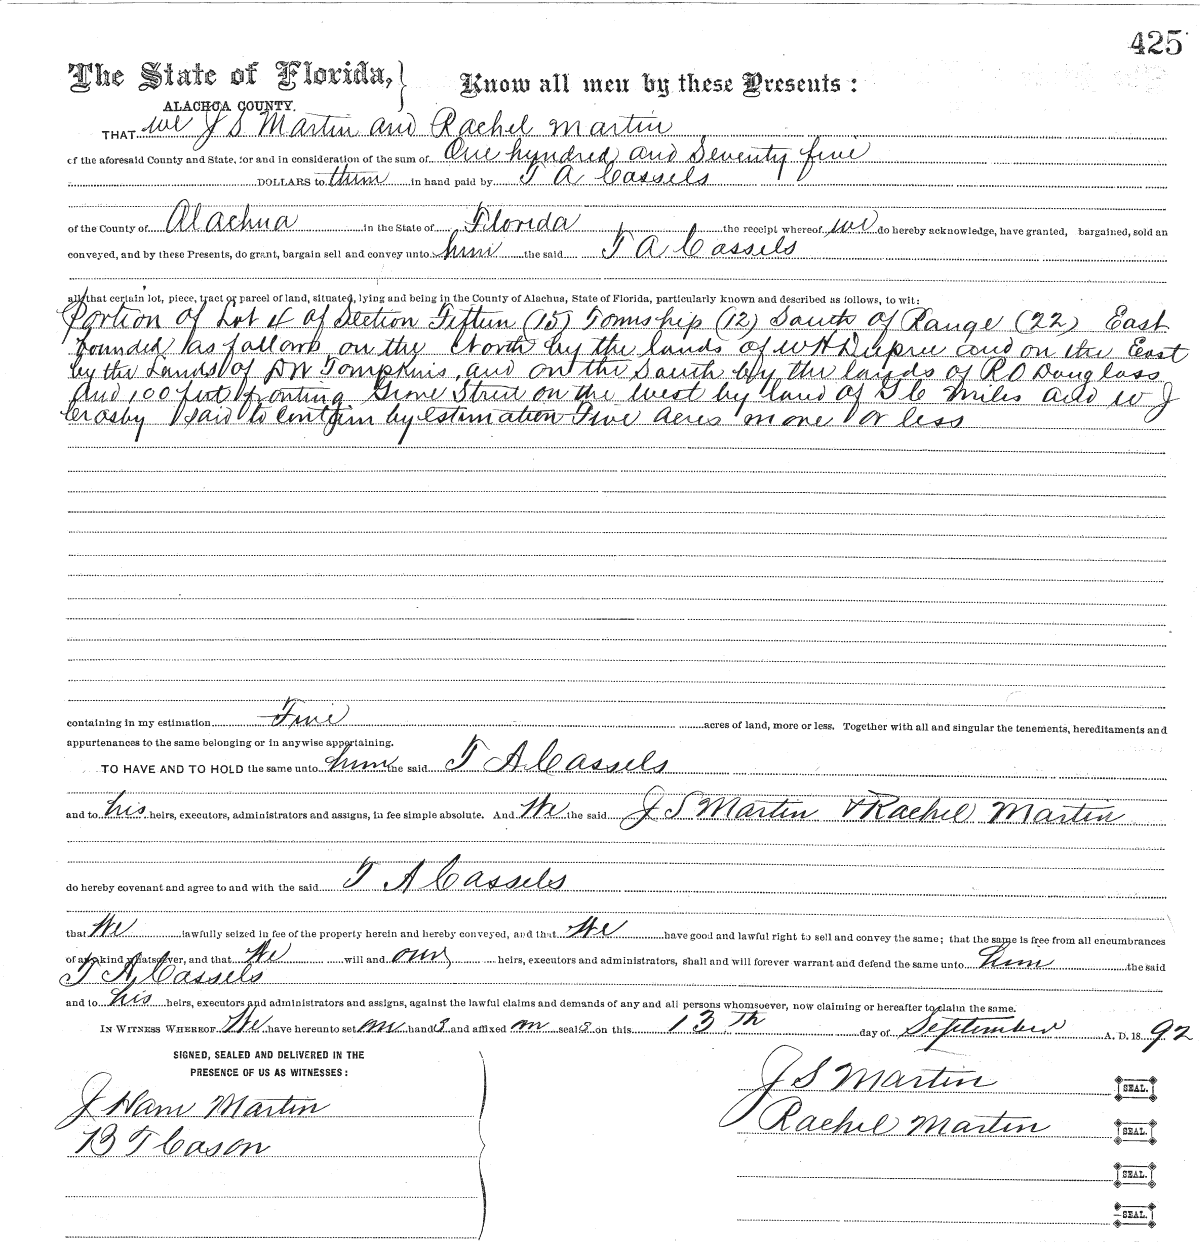 425
The State of Florida,} Know all men by these Presents:
ALACHUA COUNTY.
THAT we J S Martin and Rachel Martin
of the aforesaid County and State, for and in consideration of the sum of One hundred and Seventy five
DOLLARS to them in hand paid by T A Cassels
of the County of Alachua in the State of Florida the receipt whereof we do hereby acknowledge, have granted, bargained, sold an
conveyed, and by these Presents, do grant, bargain sell and convey unto him the said T A Cassels
all that certain lot, piece, tract or parcel of land, situated, lying and being in the County of Alachua, State of Florida, particularly known and described as follows, to wit:
Portion of Lot 4 of Section Fifteen (15) Township (12) South of Range (22) East
bounded as follows on the North by the lands of W H Dupree and on the East
by the Lands of D W Tompkins, and on the South by the lands of R O Douglass
And 100 feet fronting Grove Street on the West by land of G C Miles and W J
Crosby said to contain by estimation Five acres more or less
containing in my estimation Five acres of land, more or less. Together with all and singular the tenements, hereditaments and
appurtenances to the same belonging or in anywise appertaining.
TO HAVE AND TO HOLD the same unto him the said T A Cassels
and to his heirs, executors, administrators and assigns, in fee simple absolute. And We the said J S Martin & Rachel Martin
do hereby covenant and agree to and with the said T A Cassels
that We lawfully seized in fee of the property herein and hereby conveyed, and that We have good and lawful right to sell and convey the same; that the same is free from all encumbrances
of any kind whatsoever, and that We will and our heirs, executors and administrators, shall and will forever warrant and defend the same unto him the said
T A Cassels
and to his heirs, executors and administrators and assigns, against the lawful claims and demands of any and all persons whomsoever, now claiming or hereafter to claim the same.
IN WITNESS WHEREOF We have hereunto set our hands and affixed our seals on this 13th day of September A. D. 1892
SIGNED, SEALED AND DELIVERED IN THE
PRESENCE OF US AS WITNESSES:
J S Martin SEAL.
J Ham Martin
Rachel Martin SEAL.
B T Cason
SEAL.
SEAL.